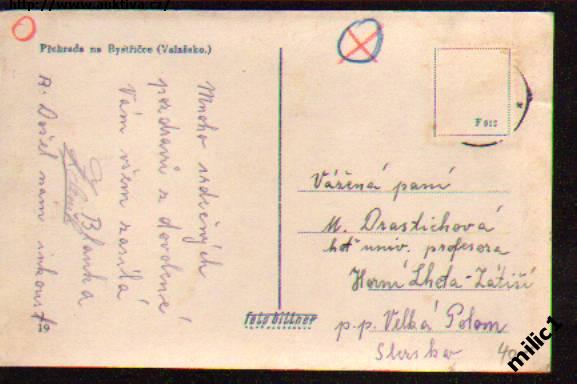 http://www.auktiva.cz/
Přehrada na Bystřičce (Valašsko.)
Mnoho srdečných
pozdravů z dovolené
Vám všem zasílá
Blanka
A: Došel nám inkoust
19
foto bittner
Foto
Vážená paní
M. Drastichová
choť univ. profesora
Horní Lhota - Zátiší
p.p. Velká Polom
Slezsko
40
milic1